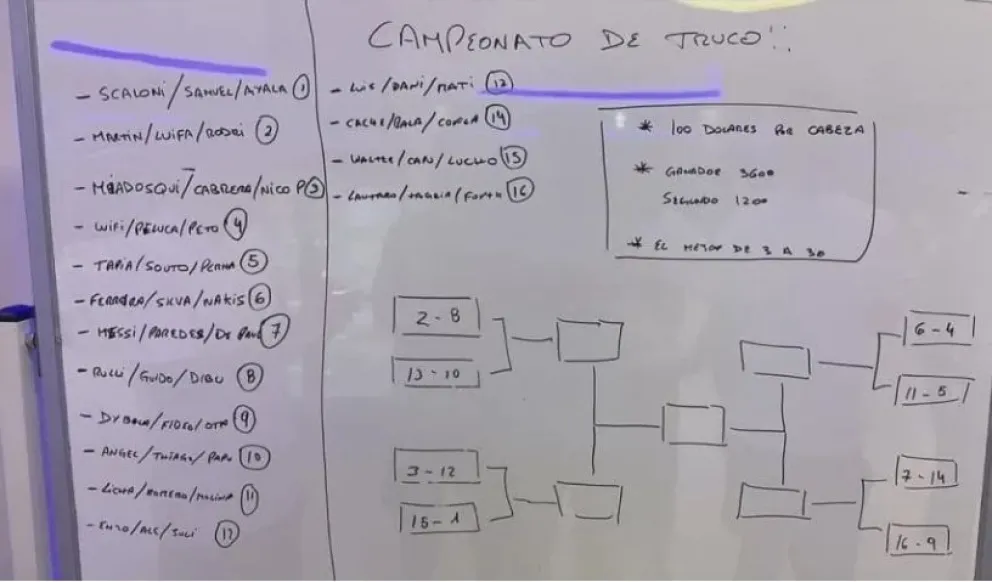 CAMPEONATO DE TRUCO!!
- SCALONI/SAMUEL/AYALA 1
- MARTIN/LUIFA/RODRI 2
- MIADOSQUI/CABRERA/NICO P 3
- WIFI/PELUCA/PETO 4
- TAPIA/SOUTO/PERNA 5
- FERREIRA/SILVA/NAKIS 6
- MESSI/PAREDES/DE PAUL 7
- RULLI/GUIDO/DIBU 8
- DYBALA/ 9
- ANGEL/THIAGO/PAPU 10
- LICHA/ROMERO/MOLINA 11
- ENZO/ALE/JULI 12
- LUIS/DANI/MATI 13
- CACHE/BALA/ 14
- WALTER/CAN/LUCHO 15
- LAUTARO/ 16
* 100 DOLARES POR CABEZA
* GANADOR 3600
SEGUNDO 1200
* EL MEJOR DE 3 A 30
2-8
13-10
3-12
15-1
6-4
11-5
7-14
16-9